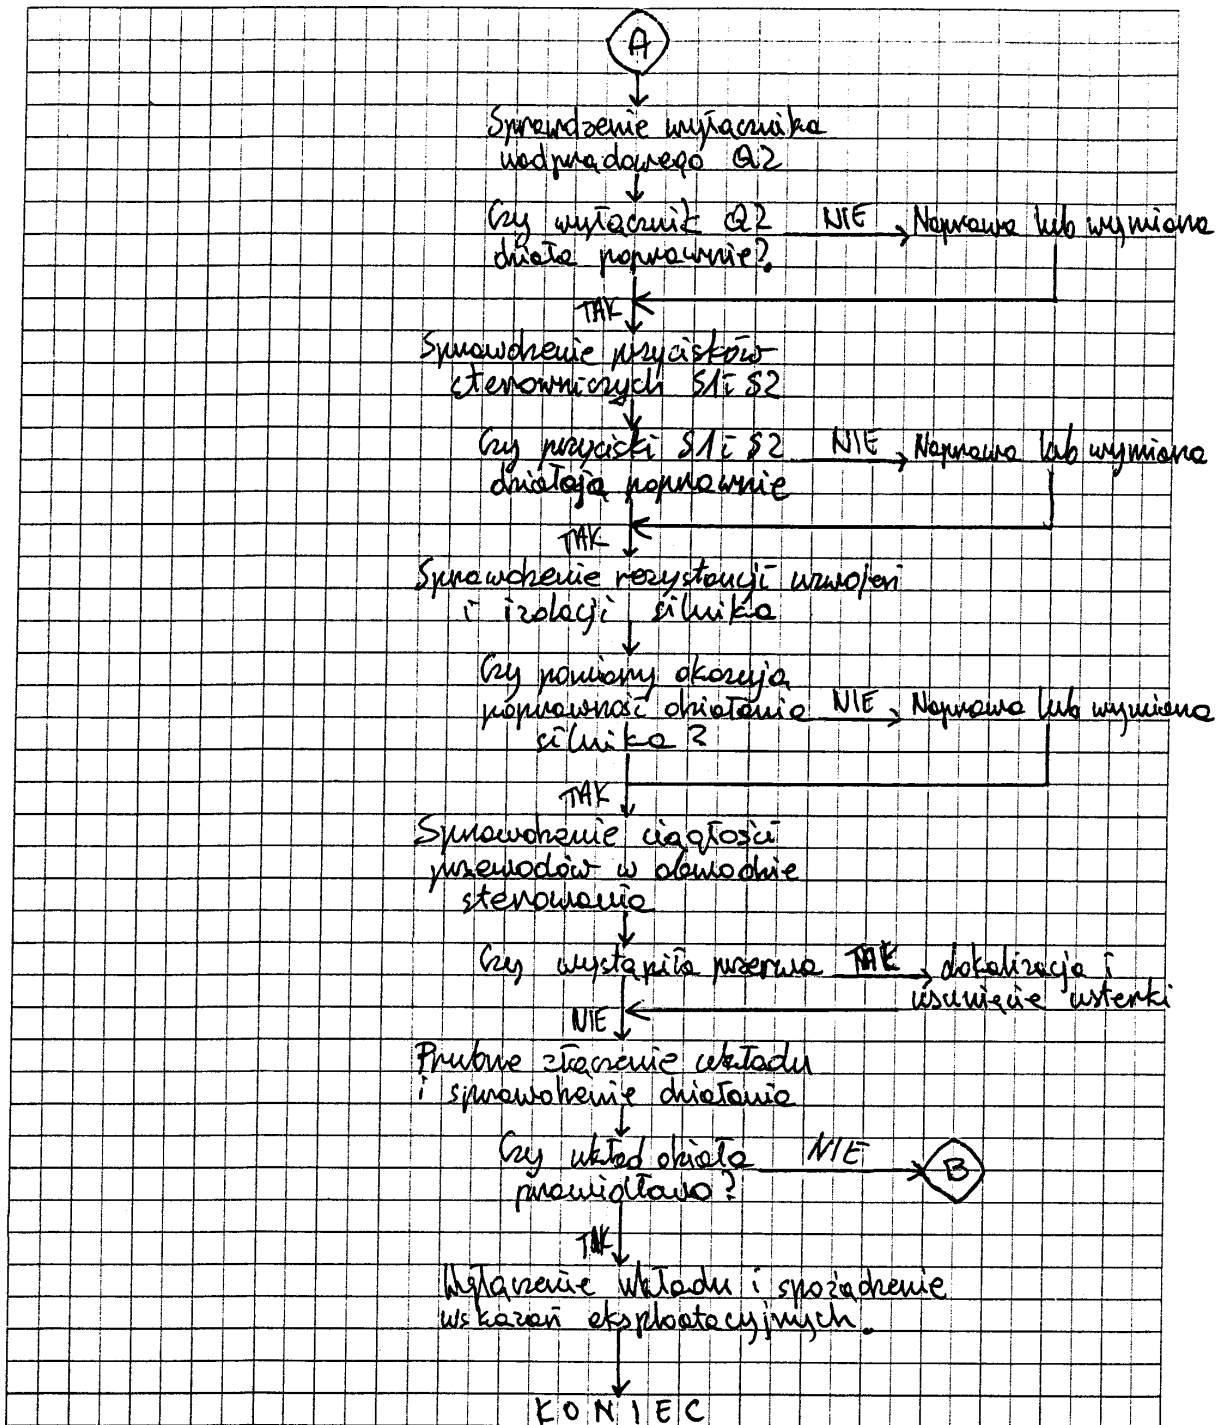 A
Sprawdzenie wyłącznika
nadprądowego Q2
Czy wyłącznik Q2 NIE Naprawa lub wymiana
działa poprawnie?
TAK
Sprawdzenie przycisków
sterowniczych S1 i S2
Czy przyciski S1 i S2 NIE Naprawa lub wymiana
działają poprawnie
TAK
Sprawdzenie rezystancji uzwojeń
i izolacji silnika
Czy pomiary okazują
poprawność działania NIE Naprawa lub wymiana
silnika?
TAK
Sprawdzenie ciągłości
przewodów w obwodzie
sterowania
Czy wystąpiła przerwa TAK Lokalizacja i
usunięcie usterki
NIE
Prubne złączenie układu
i sprawdzenie działania
Czy układ działa NIE B
prawidłowo?
TAK
Wyłączenie układu i spożądzenie
wskazań eksploatacyjnych.
KONIEC